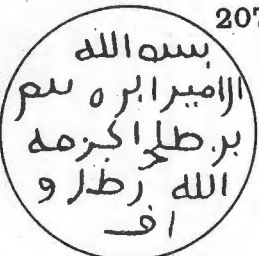 207
بسم الله
الامير ابرهيم
بن صلح اكرمه
الله رطل و
اف